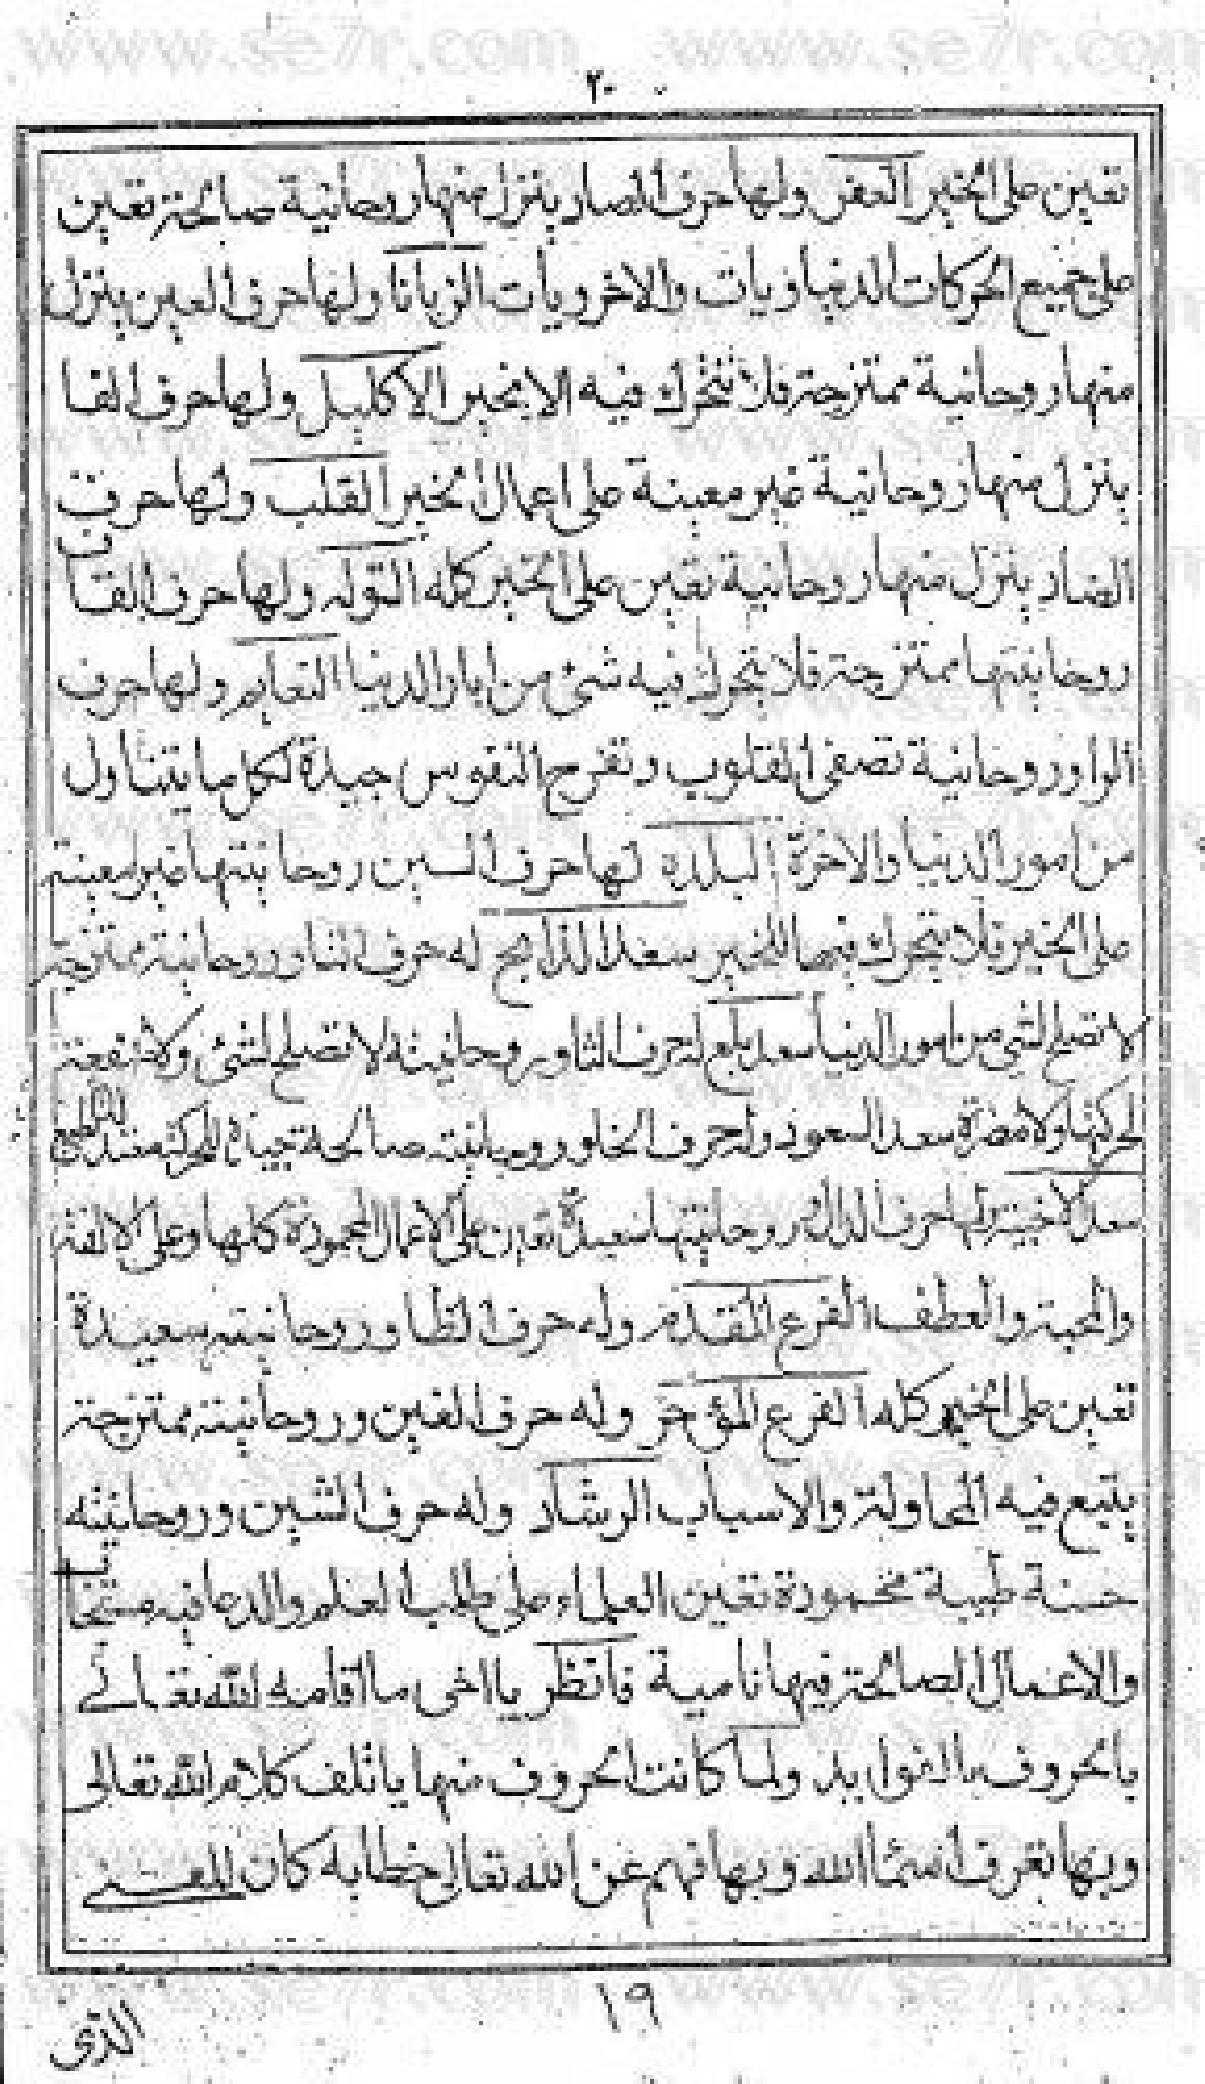 www.se7r.com www.se7r.com
٢٠
تعين على الخير الغفر ولها حرف الصاد ينزل منها روحانية صالحة تعين
على جميع الحركات الدنياويات والاخرويات الزبانا ولها حرف العين ينزل
منها روحانية ممتزجة فلا تتحرك فيه الا بخير الاكليل ولها حرف الفا
ينزل منها روحانية غير معينة على اعمال الخير القلب ولها حرف
الصاد ينزل منها روحانية تعين على الخير كله الشوله ولها حرف القاف
روحانيتها ممتزجة فلا يتحرك فيه شئ من الدنيا النعايم ولها حرف
الرا وروحانية تصفى القلوب وتفرح النفوس جيدة لكل ما يتناول
من امور الدنيا والاخرة البلدة لها حرف السين روحانيتها غير معينة
على الخير فلا يتحرك فيها لخير سعد الذابح له حرف التا وروحانيته ممتزجة
لا تصلح لشئ من امور الدنيا سعد بلع له حرف الثا وروحانيته لا تصلح لشئ ولا منفعة
لحركتها ولا مضرة سعد السعود وله حرف الخا وروحانيته صالحة جيدة للحركة
سعد الاخبية لها حرف الذال روحانيتها سعيدة تعين على الاعمال المحمودة كلها وعلى الالفة
والمحبة والعطف الفرع المقدم وله حرف الظا وروحانيته سعيدة
تعين على الخير كله الفرع المؤخر وله حرف الغين وروحانيته ممتزجة
فيه المحاولة والاسباب الرشا وله حرف الشين وروحانيته
حسنة طيبة محمودة تعين العلماء على طلب العلم والدعا فيه مستجاب
والاعمال الصالحة فيها نامية فانظر يا اخى ما اقامه الله تعالى
بالحروف ولما كانت الحروف منها يأتلف كلام الله تعالى
وبها تعرف اسما الله وبها نهم عن الله تعالى خطابه كان المعنى
١٩
الذى